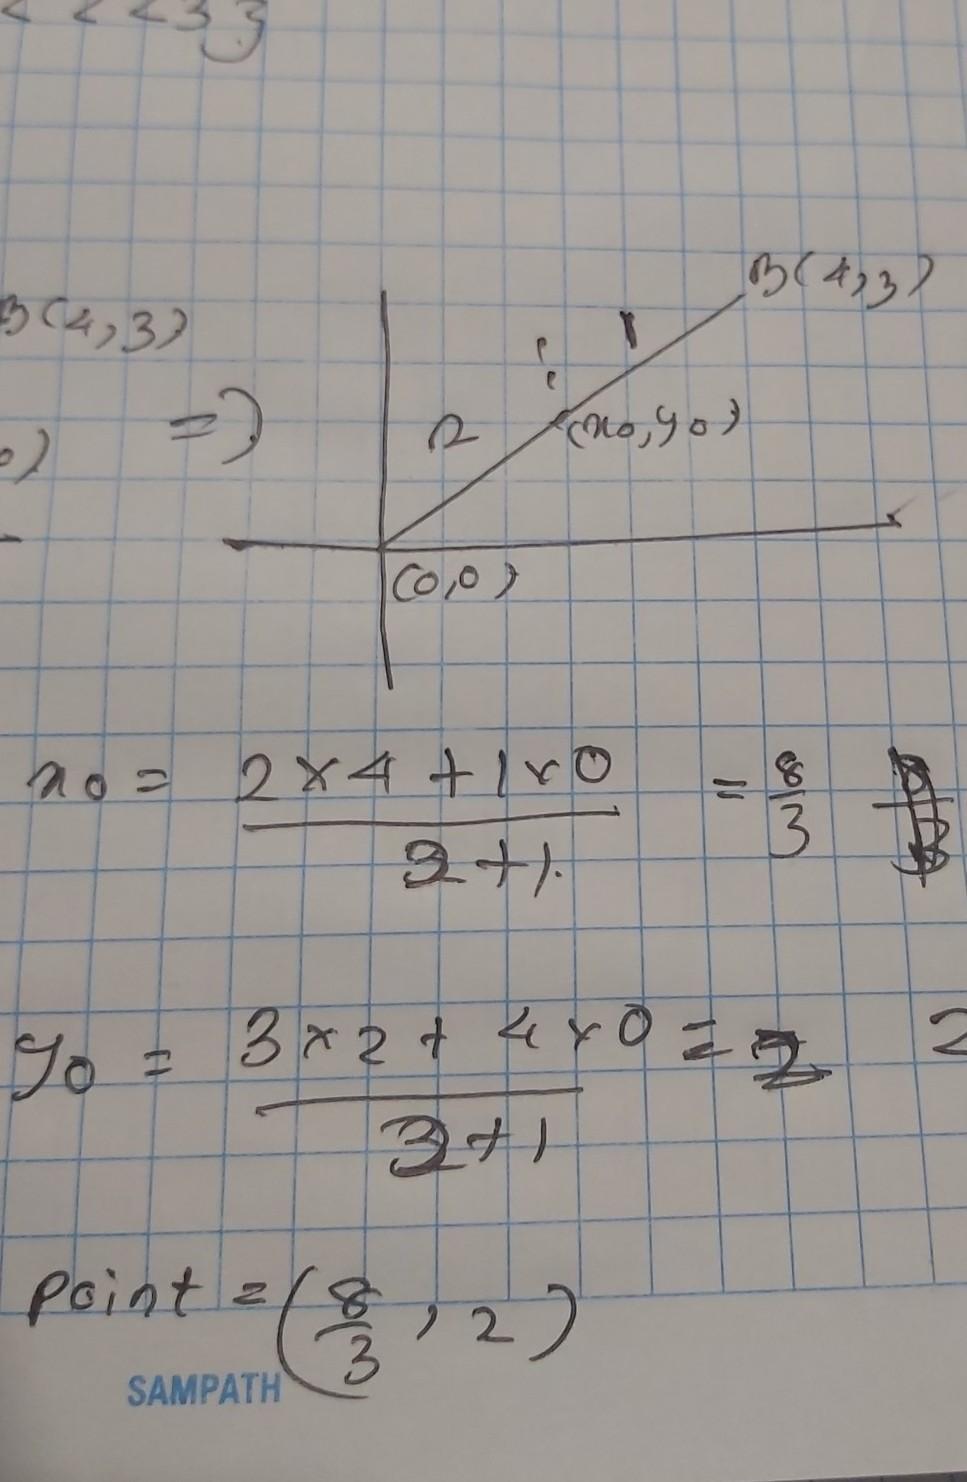 B(4,3)
B(4,3)
1
2
(x0,y0)
=>
0)
(0,0)
x0 = 2×4 + 1×0 = 8
2+1 3
y0 = 3×2 + 4×0 = 2 2
2+1
point = (8/3, 2)
SAMPATH